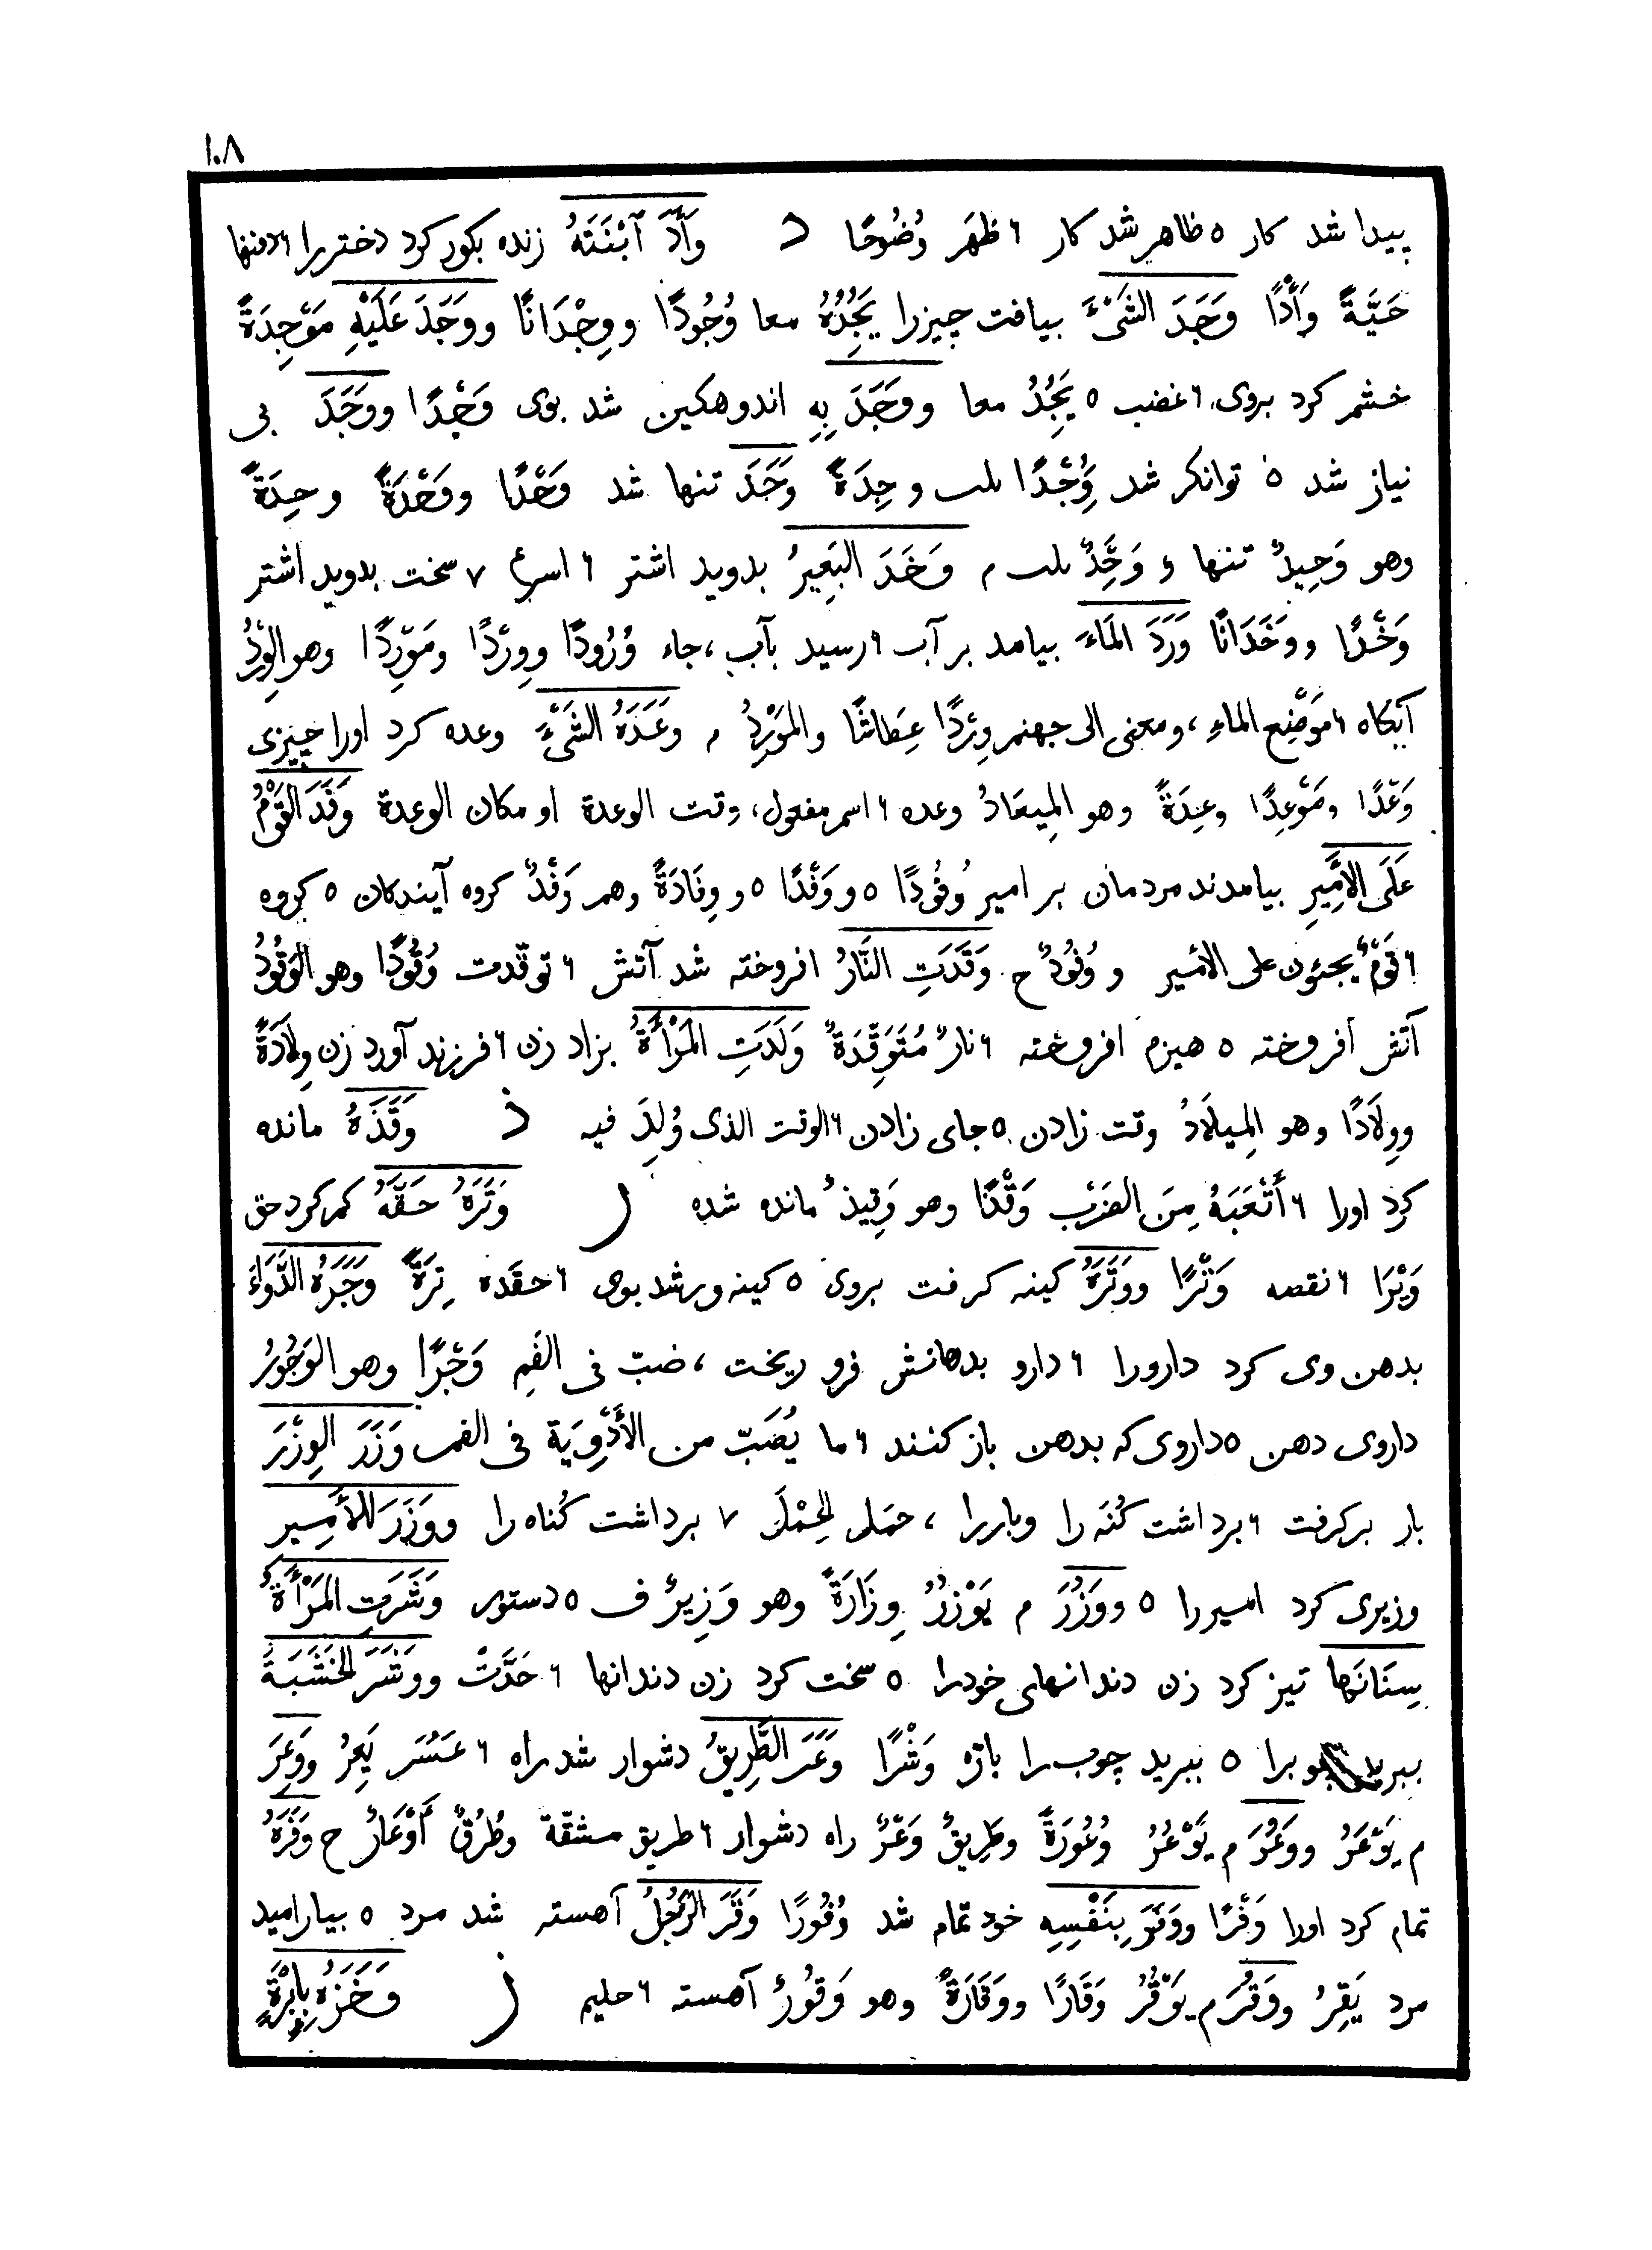 ١٠٨
پیدا شد کار ٥ ظاهر شد کار ٦ ظهَر وُضُوحًا د وَأَدَ ٱبْنَتَهُ زنده بکور کرد دختر را ٦ دفنها
حَيَّةً وَأْدًا وَجَدَ الشَىْءَ بیافت چیزرا يَجِدُهُ معا وُجُودًا ووِجْدَانًا ووَجَدَ عَلَيْهِ مَوْجِدَةً
خشم کرد بروی ٦ غضب ٥ يَجِدُ معا ووَجَدَ بِهِ اندوهکین شد بوی وَجْدًا ووَجَدَ بی
نیاز شد ٥ توانکر شد وُِجْدًا ىلىـ وجِدَةً وَحَدَ تنها شد وَحْدًا ووَحْدَةً وحِدَةً
وهو وَحِيدٌ تنها ء وَحَِدٌ ىلىـ م وَخَدَ البَعِيرُ بدوید اشتر ٦ اسرع ٧ سخت بدوید اشتر
وَخْدًا ووَخَدَانًا وَرَدَ المَاءَ بیامد بر آب ٦ رسید بآب ، جاء وُرُودًا ووِرْدًا ومَوْرِدًا وهو الوِرْدُ
آبکاه ٦ مَوْضِع الماءِ ، ومعنى الى جهنم وِرْدًا عِطَاشًا والمَوْرِدُ م وَعَدَهُ الشَىْءَ وعده کرد اورا چیزی
وَعْدًا ومَوْعِدًا وعِدَةً وهو المِيعَادُ وعده ٦ اسم مفعول ، وقت الوعدة او مكان الوعدة وَفَدَ القَوْمُ
عَلَى الأَمِيرِ بیامدند مردمان بر امیر وُفُودًا ٥ ووَفْدًا ٥ ووِفَادَةً وهم وَفْدٌ کروه آیندکان ٥ کروه
٦ قَوْمٌ يجئون على الأمير و وُفُودٌ ح وَقَدَتِ النَّارُ افروخته شد آتش ٦ توقدت وُقُودًا وهو الوَقُودُ
آتش افروخته ٥ هیزم افروخته ٦ نارٌ مُتَوَقِّدَةٌ وَلَدَتِ المَرْأَةُ بزاد زن ٦ فرزند آورد زن وِلَادَةً
ووِلَادًا وهو المِيلَادُ وقت زادن ٥ جای زادن ٦ الوقت الذى وُلِدَ فيه ذ وَقَذَهُ مانده
کرد اورا ٦ أَتْعَبَهُ مِنَ الضَرْب وَقْذًا وهو وَقِيذٌ مانده شده ر وَتَرَهُ حَقَّهُ کم کرد حق
وَیْرَا ٦ نقصه وَتْرًا ووَتَرَهُ کینه کرفت بروی ٥ کینه ورشد بوی ٦ حقده تِرَةً وَجَرَهُ الدَّوَاءَ
بدهن وی کرد دارورا ٦ دارو بدهانش فرو ریخت ، صَبّ فى الفَمِ وَجْرًا وهو الوَجُورُ
داروی دهن ٥ داروی که بدهن باز کنند ٦ ما يُصَبّ من الأَدْوِيَة فى الفم وَزَرَ الوِزْرَ
بار برکرفت ٦ برداشت کُنَه را وباررا ، حَمَلَ الحِمْلَ ٧ برداشت کُناه را ووَزَرَ للأَمِير
وزیری کرد امیررا ٥ ووَزُرَ م يَوْزُرُ وِزَارَةً وهو وَزِيرٌ ف ٥ دستور وَشَرَتِ المَرْأَةُ
سِنَانَهَا تیز کرد زن دندانهای خودرا ٥ سخت کرد زن دندانها ٦ حَدَّتْ ووَشَرَ الخَشَبَةَ
ببرید چوبرا ٥ ببرید چوب را باژه وَشْرًا وَعَرَ الطَّرِيقُ دشوار شد راه ٦ عَسُرَ يَعِرُ ووَعِرَ
م يَوْعَرُ ووَعُرَ م يَوْعُرُ وُعُورَةً وطَرِيقٌ وَعْرٌ راه دشوار ٦ طريق مشقّة وطُرُقٌ أَوْعَارٌ ح وَفَرَهُ
تمام کرد اورا وَفْرًا ووَفَرَ بِنَفْسِهِ خود تمام شد وُفُورًا وَقَرَ الرَجُلُ آهسته شد مرد ٥ بیارامید
مرد يَقِرُ ووَقُرَ م يَوْقُرُ وَقَارًا ووَقَارَةً وهو وَقُورٌ آهسته ٦ حلیم ز وَخَزَهُ بِإِبْرَةٍ